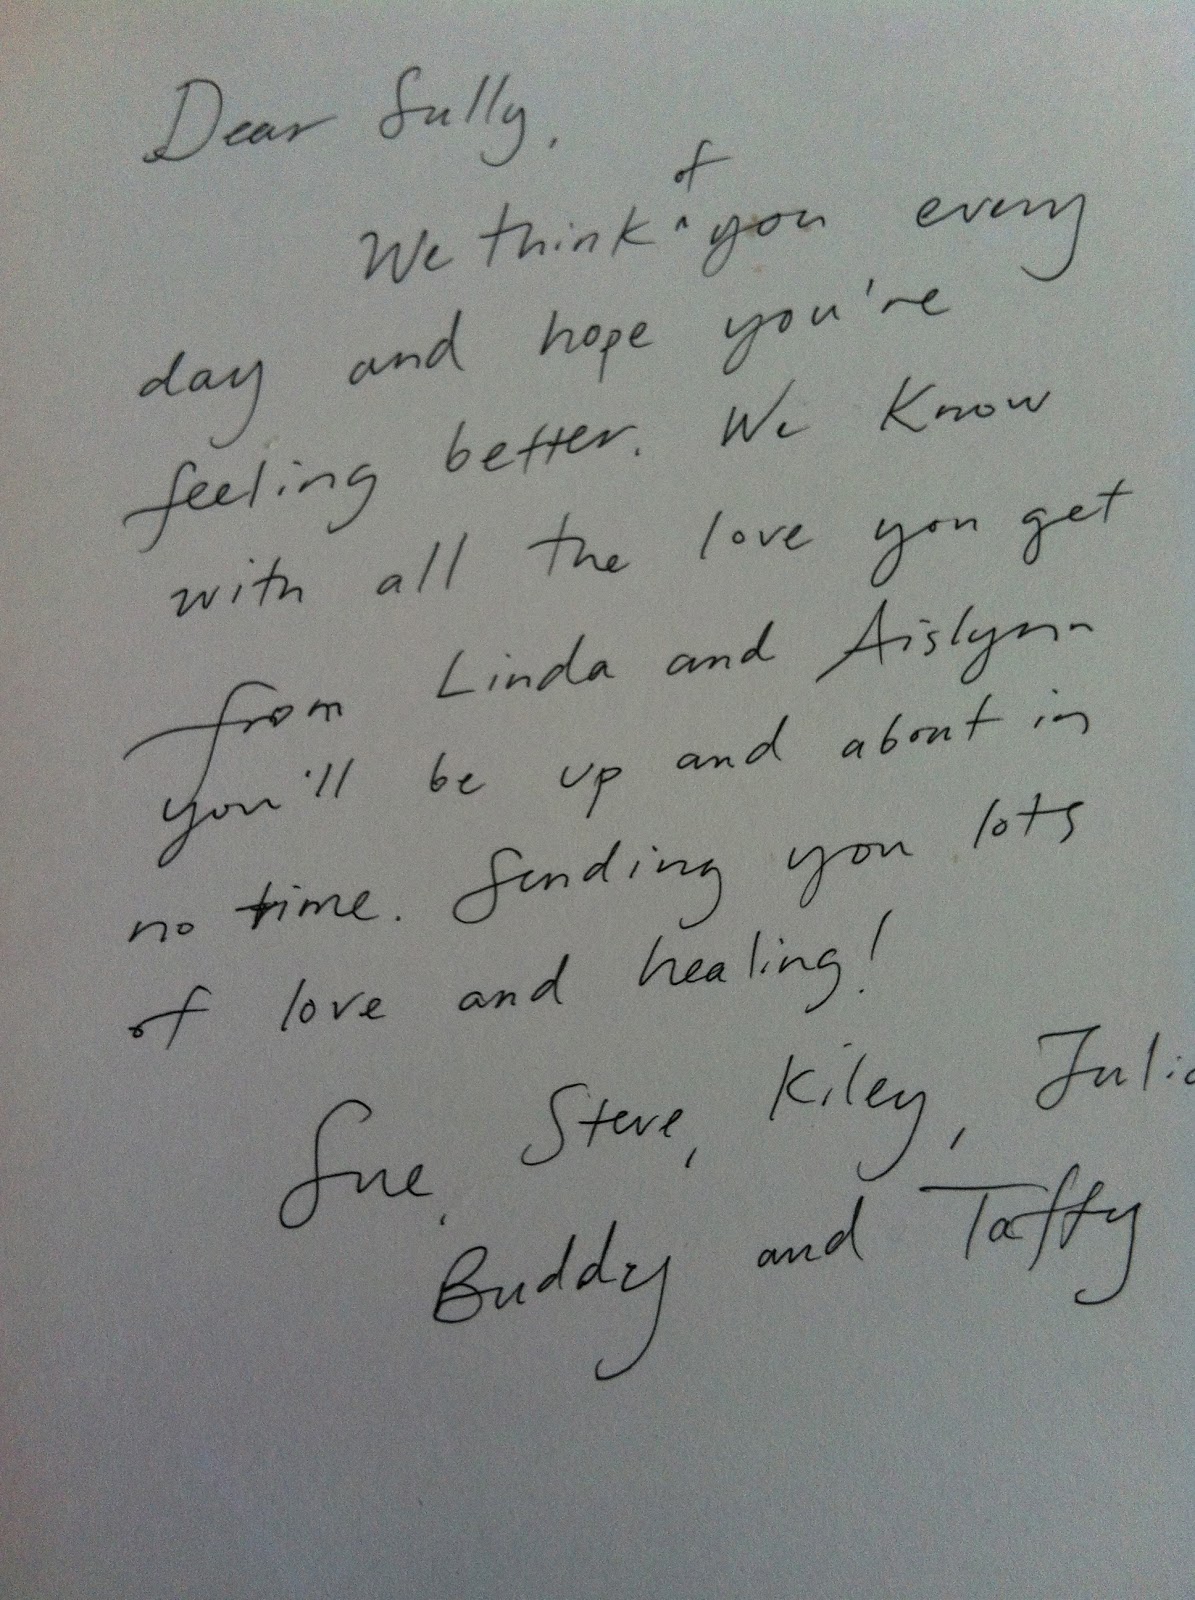 Dear Sully,
We think of you every
day and hope you're
feeling better. We know
with all the love you get
from Linda and Aislynn
you'll be up and about in
no time. Sending you lots
of love and healing!
Sue, Steve, Kiley, Julia
Buddy and Taffy